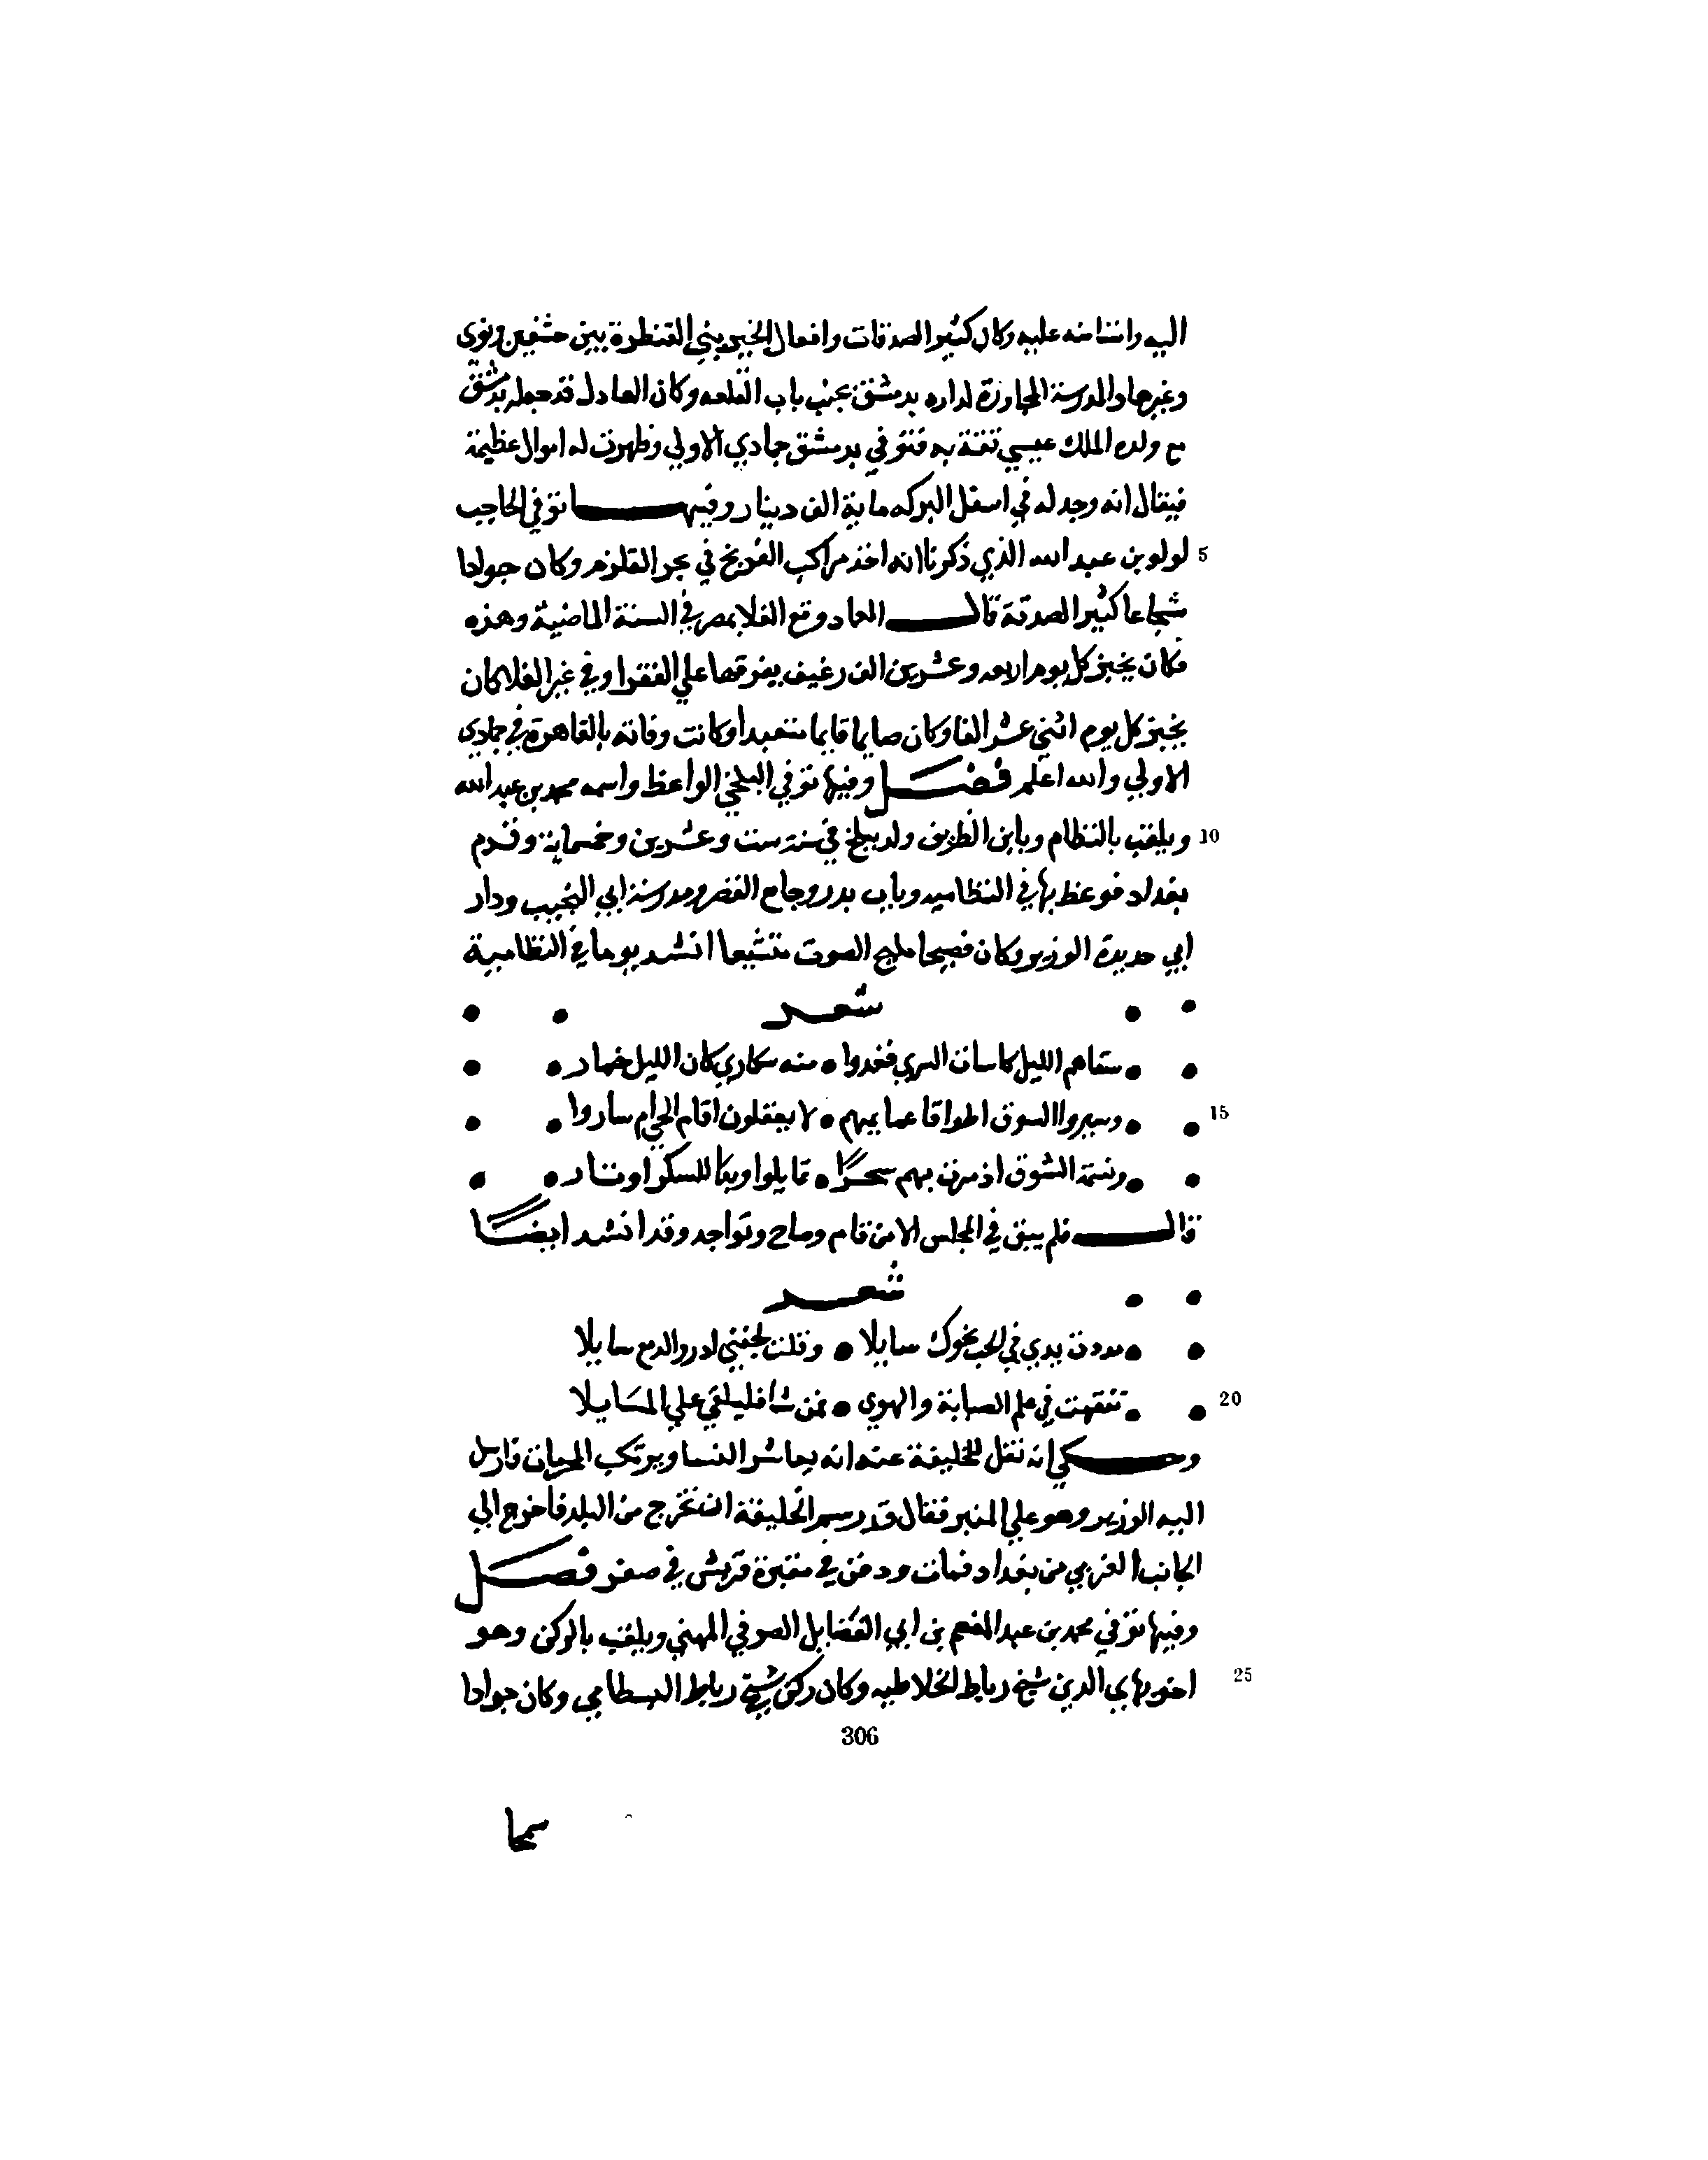 اليه واثنا منه عليه وكان كثير الصدقات وافعال الخير بني القنطرة بين خشفين ونوى
وغيرها والمدرسة المجاورة لداره بدمشق بجنب باب القلعه وكان العادل قد جعله بدمشق
مع ولده الملك عيسي ثقة به فتوفي بدمشق جمادي الاولي وظهرت له اموال عظيمة
فيقال انه وجد له في اسفل البركه ماية الف دينار وفيهــــا توفي الحاجب
5 لولو بن عبد الله الذي ذكرنا انه اخذ مراكب الفرنج في بحر القلزم وكان جوادا
شجاعا كثير الصدقة قالــــ العماد وقع الغلا بمصر في السنة الماضية وهذه
فكان يخبز كل يوم اربعه وعشرين الف رغيف يفرقها علي الفقرا وفي غير الغلا كان
يخبز كل يوم اثني عشر الفا وكان صايما قايما متعبدا وكانت وفاته بالقاهرة في جمادي
الاولي والله اعلم فصـــل وفيها توفي البلخي الواعظ واسمه محمد بن عبد الله
10 ويلقب بالنظام وبابن الظريف ولد ببلخ في سنة ست وعشرين وخمسماية وقدم
بغداد فوعظ بها في النظاميه وباب بدر وجامع القصر ومدرسة ابي النجيب ودار
ابي حديدة الوزير وكان فصيحا مليح الصوت متشيعا انشد يوما في النظامية
شعـــر
سقاهم الليل كاسات السري فغدوا • منه سكاري كان الليل خمار
15 وسيروا السوق اطواقا عمايمهم • لا يعقلون اقام الحي ام ساروا
ونسمة الشوق اذ مرت بهم سحرًا • تمايلوا وبها للسكر اوتار
قالــــ فلم يبق في المجلس الا من قام وصاح وتواجد وقد انشد ايضًا
شعـــر
مددت يدي في الحب نحوك سايلا • وقلت لجفني ادر الدمع سايلا
20 تفقهت في علم الصبابة والهوي • فمن شا فليلقي علي المسايلا
وحـــكي انه نقل للخليفة عنه انه يعاشر النسا ويرتكب المحرمات فارسل
اليه الوزير وهو علي المنبر فقال قد رسم الخليفة ان تخرج من البلد فاخرج الي
الجانب الغربي من بغداد فمات ودفن في مقبرة قريش في صفر فصـــل
وفيها توفي محمد بن عبد المنعم بن ابي الفضايل الصوفي المهني ويلقب بالركن وهو
25 اخو بهاي الدين شيخ رباط الخلاطيه وكان ركن شيخ رباط البسطامي وكان جوادا
306
سمحا